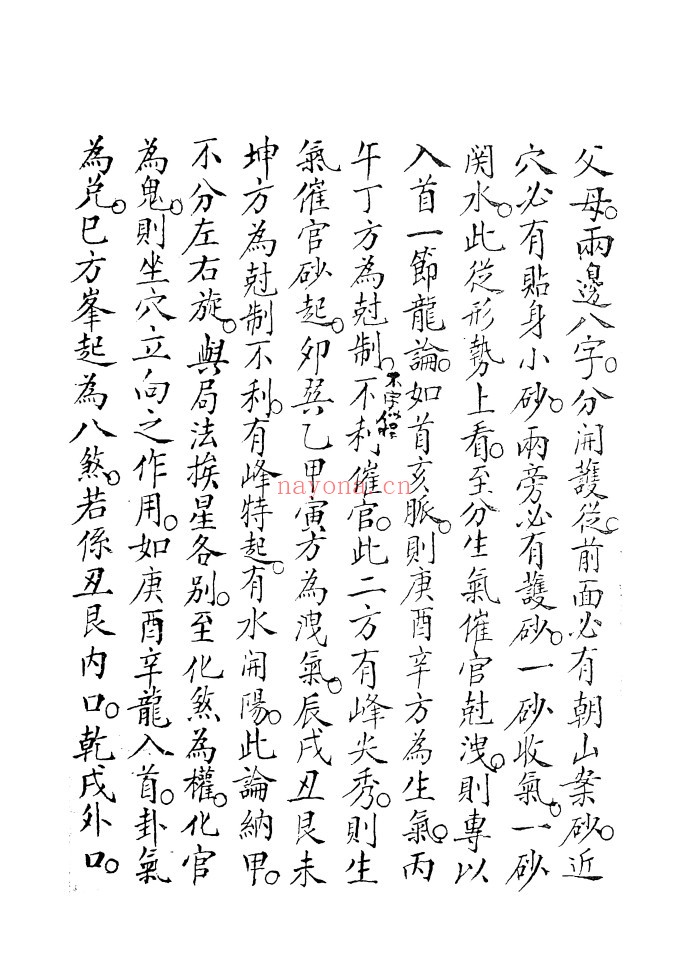 父母。兩邊八字。分開護從。前面必有朝山案砂。近
穴必有貼身小砂。兩旁必有護砂。一砂收氣。一砂
関水。此從形勢上看。至分生氣催官尅洩。則專以
入首一節龍論。如首亥脈。則庚酉辛方為生氣。丙
午丁方為尅制。不利催官。此二方有峰尖秀。則生
氣催官砂起。卯巽乙甲寅方為洩氣。辰戌丑艮未
坤方為尅制不利。有峰特起。有水開陽。此論納甲。
不分左右旋。與局法挨星各别。至化煞為權。化官
為鬼。則坐穴立向之作用。如庚酉辛龍入首。卦氣
為兌。巳方峯起為八煞。若係丑艮内口。乾戌外口。
nayona.cn